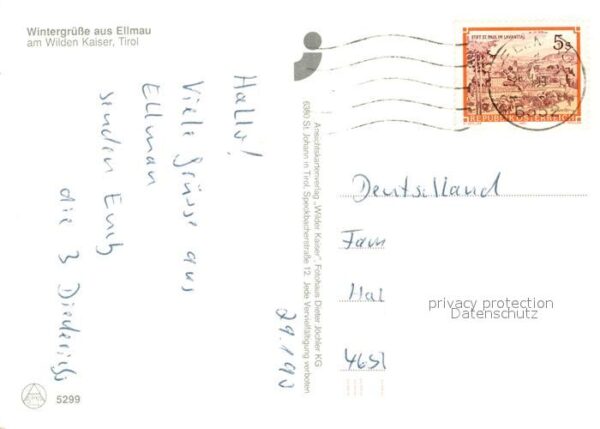 Wintergrüße aus Ellmau
am Wilden Kaiser, Tirol
Hallo!
Viele Grüsse aus
Ellmau
senden Euch
die 3
29.1.90
Ansichtskartenverlag „Wilder Kaiser“, Fotohaus Dieter Jöchler KG
6380 St. Johann in Tirol, Speckbacherstraße 12. Jede Vervielfältigung verboten
STIFT ST. PAUL IM LAVANTTAL
5s
REPUBLIK ÖSTERREICH
6352
Deutschland
Fam
Hal
privacy protection
Datenschutz
4651
5299